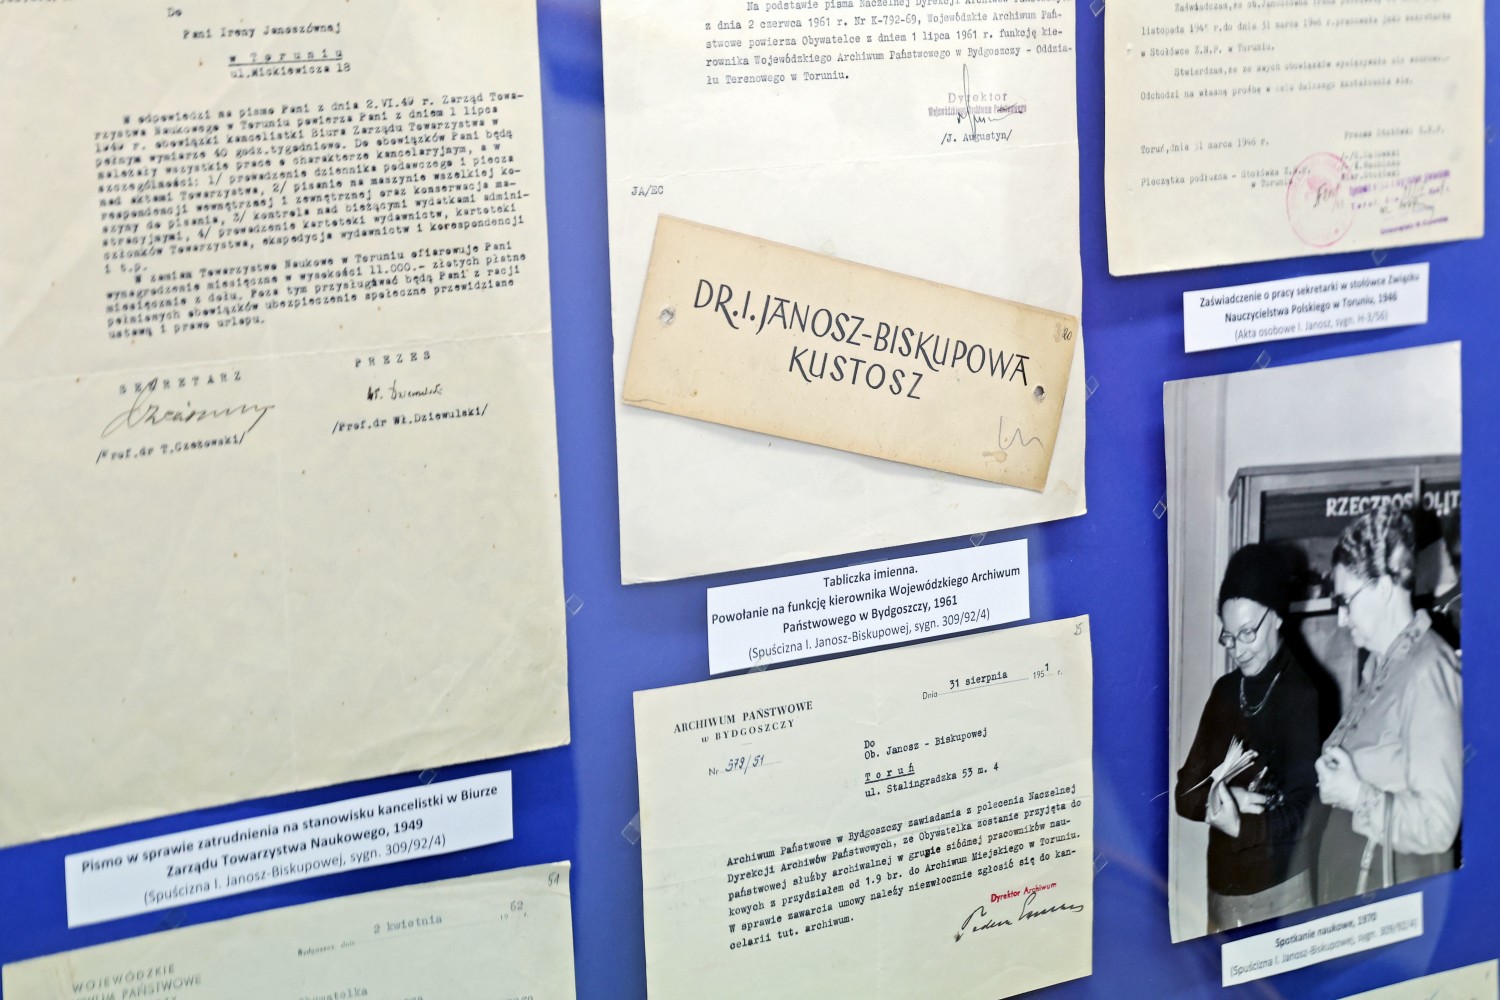 Do
Pani Ireny Janoszównej
w Toruniu
ul.Mickiewicza 18
W odpowiedzi na pismo Pani z dnia 2.VI.49 r. Zarząd Towa-
rzystwa Naukowego w Toruniu powierza Pani z dniem 1 lipca
1949 r. obowiązki kancelistki Biura Zarządu Towarzystwa w
pełnym wymiarze 40 godz.tygodniowo. Do obowiązków Pani będą
należały wszystkie prace o charakterze kancelaryjnym, a w
szczególności: 1/ prowadzenie dziennika podawczego i piecza
nad aktami Towarzystwa, 2/ pisanie na maszynie wszelkiej ko-
respondencji wewnętrznej i zewnętrznej oraz konserwacja ma-
szyny do pisania, 3/ kontrola nad bieżącymi wydatkami admini-
stracyjnymi, 4/ prowadzenie kartoteki wydawnictw, kartoteki
członków Towarzystwa, ekspedycja wydawnictw i korespondencji
i t.p.
W zamian Towarzystwo Naukowe w Toruniu ofiarowuje Pani
wynagrodzenie miesięczne w wysokości 11.000.- złotych płatne
miesięcznie z dołu. Poza tym przysługiwać będą Pani z racji
pełnionych obowiązków ubezpieczenie społeczne przewidziane
ustawą i prawo urlopu.
SEKRETARZ
PREZES
/Prof.dr T.Czeżowski/
/Prof.dr Wł.Dziewulski/
Pismo w sprawie zatrudnienia na stanowisku kancelistki w Biurze
Zarządu Towarzystwa Naukowego, 1949
(Spuścizna I. Janosz-Biskupowej, sygn. 309/92/4)
51
2 kwietnia 62
Bydgoszcz dnia
WOJEWÓDZKIE
PAŃSTWOWE
Na podstawie pisma Naczelnej Dyrekcji Archiwów Państwowych
z dnia 2 czerwca 1961 r. Nr K-792-69, Wojewódzkie Archiwum Pań-
stwowe powierza Obywatelce z dniem 1 lipca 1961 r. funkcję kie-
rownika Wojewódzkiego Archiwum Państwowego w Bydgoszczy - Oddzia-
łu Terenowego w Toruniu.
Dyrektor
Wojewódzkiego Archiwum Państwowego
/J. Augustyn/
JA/EC
DR. I. JANOSZ-BISKUPOWA
KUSTOSZ
Tabliczka imienna.
Powołanie na funkcję kierownika Wojewódzkiego Archiwum
Państwowego w Bydgoszczy, 1961
(Spuścizna I. Janosz-Biskupowej, sygn. 309/92/4)
ARCHIWUM PAŃSTWOWE
w BYDGOSZCZY
Nr 579/51
Dnia 31 sierpnia 1951 r.
Do
Ob. Janosz - Biskupowej
Toruń
ul. Stalingradzka 53 m. 4
Archiwum Państwowe w Bydgoszczy zawiadamia z polecenia Naczelnej
Dyrekcji Archiwów Państwowych, że Obywatelka zostanie przyjęta do
państwowej służby archiwalnej w grupie siódmej pracowników nau-
kowych z przydziałem od 1.9 br. do Archiwum Miejskiego w Toruniu.
W sprawie zawarcia umowy należy niezwłocznie zgłosić się do kan-
celarii tut. archiwum.
Dyrektor Archiwum
listopada 1945 r.do dnia 31 marca 1946 r.pracowała jako sekretarka
w Stołówce Z.N.P. w Toruniu.
Odchodzi na własną prośbę w celu dalszego kształcenia się.
Toruń,dnia 31 marca 1946 r.
Prezes Stołówki Z.N.P.
Pieczątka podłużna - Stołówka Z.N.P.
w Toruniu
Zaświadczenie o pracy sekretarki w stołówce Związku
Nauczycielstwa Polskiego w Toruniu, 1946
(Akta osobowe I. Janosz, sygn. H-3/56)
RZECZPOSPOLIT
Spotkanie naukowe, 1970
(Spuścizna I. Janosz-Biskupowej, sygn. 309/92/4)